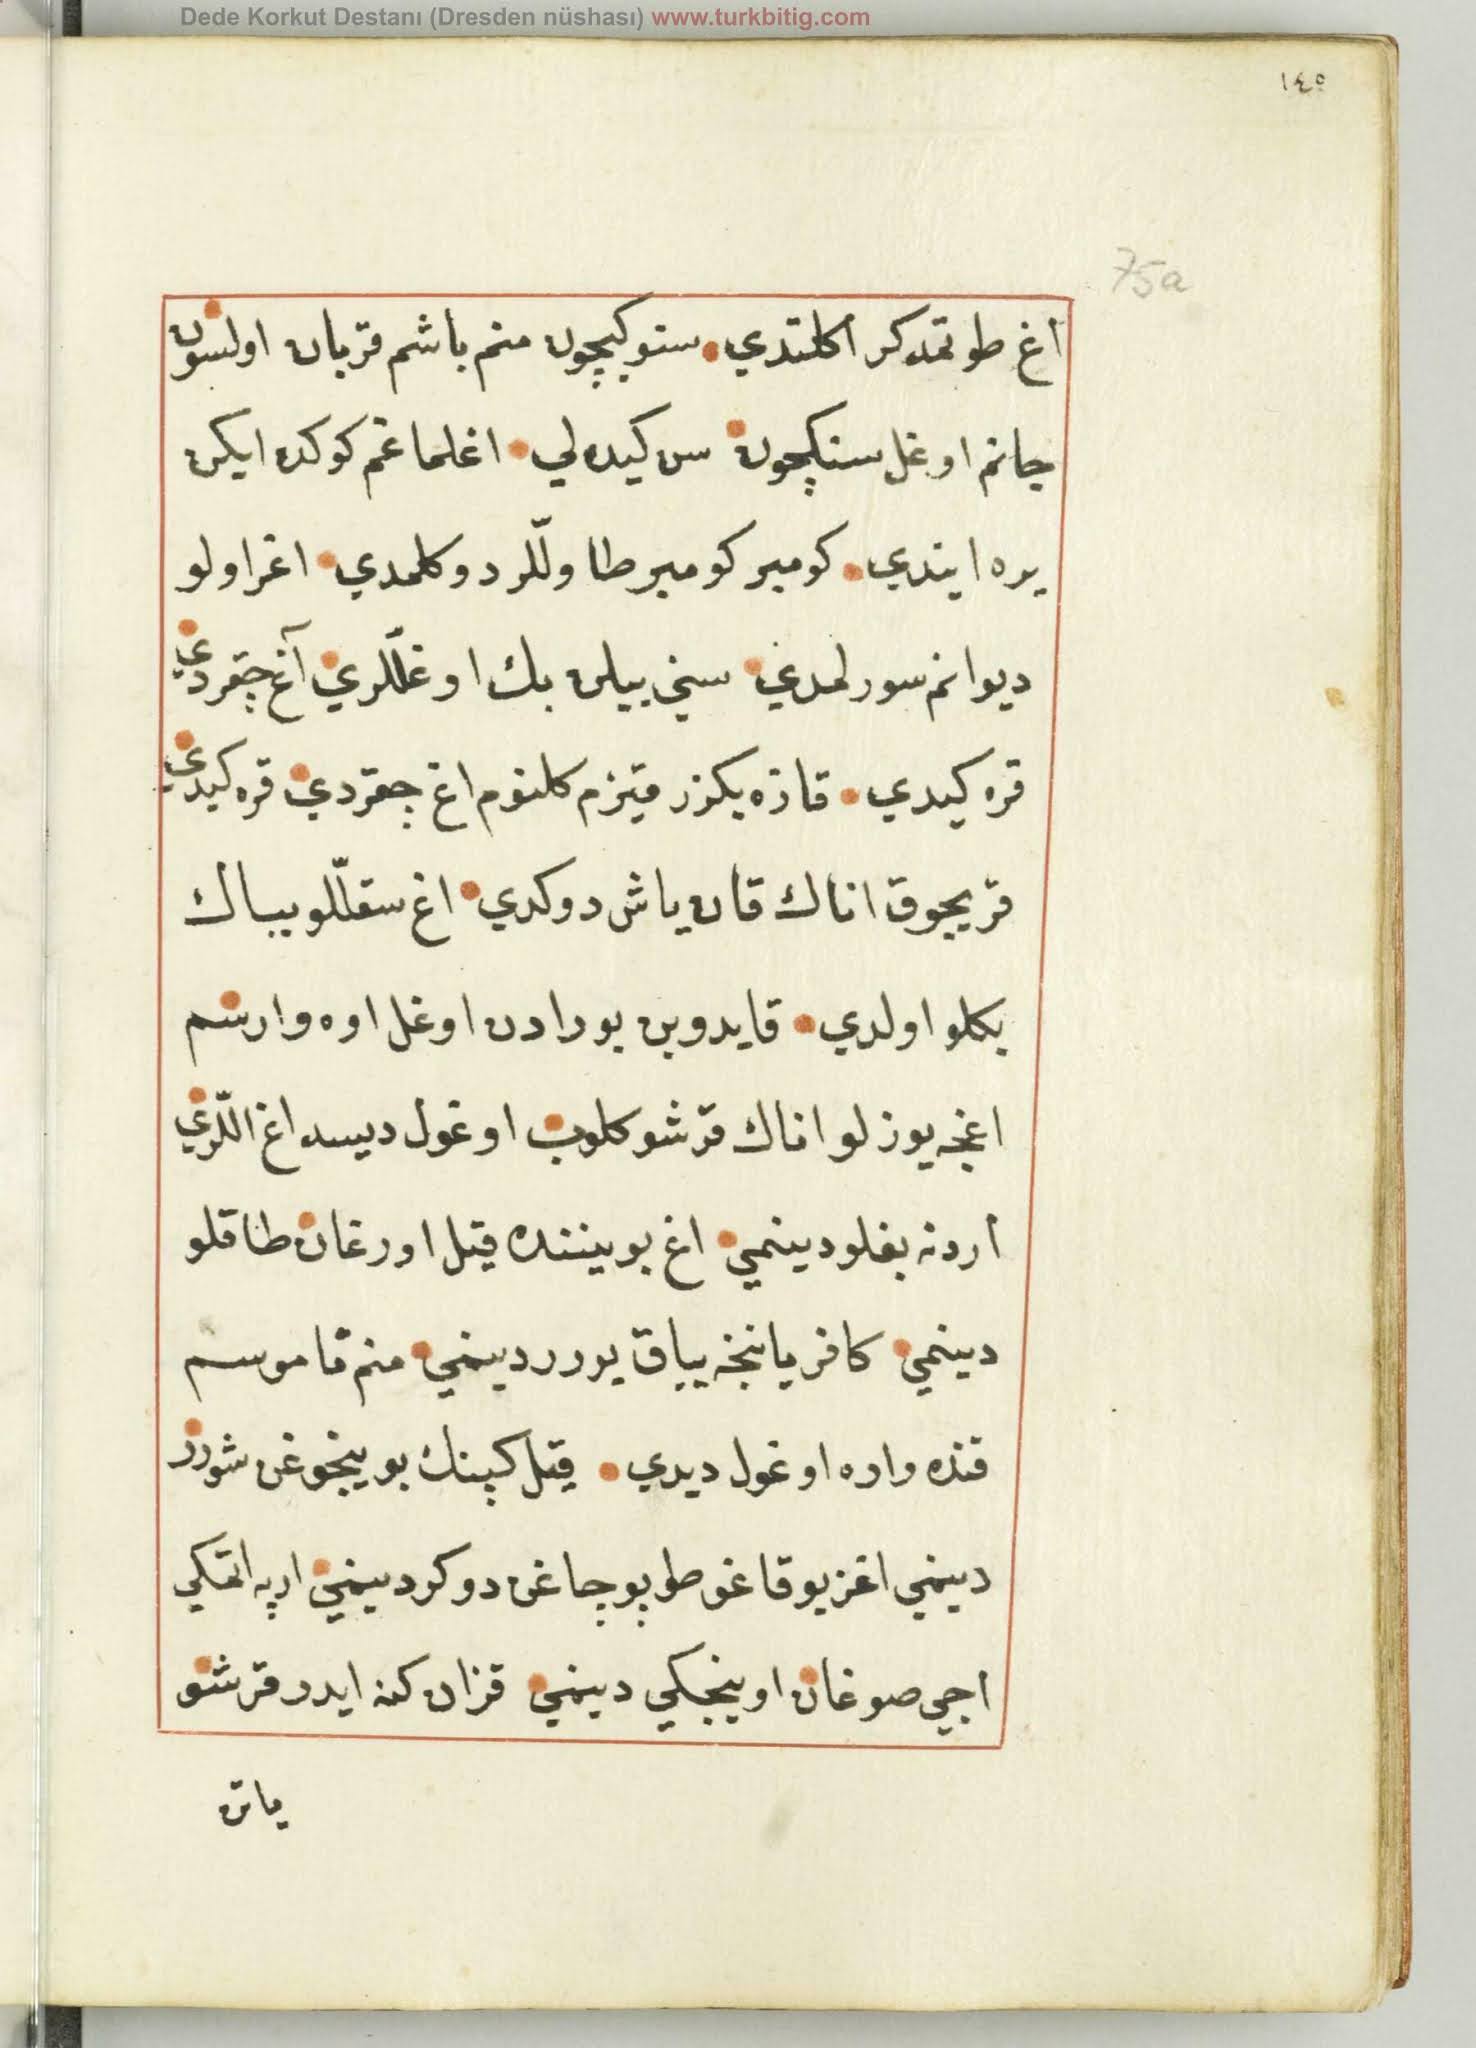 Dede Korkut Destanı (Dresden nüshası) www.turkbitig.com
١٤٥
75a
اغ طوتمه كز اكلتدي سنوكيچون منم باشم قربان اولسون
جانم اوغل سنكچون سن كيده لي اغلماغم كوكده ايكن
يره ايندي كومبر كومبر طاوللر دوكلمدي اغر اولو
ديوانم سورلمدي سني بيلن بك اوغللري آغ چقردي
قره كيدي قازه بكزر قيزم كلنوم اغ چقردي قره كيدي
قريجوق اناك قان ياش دوكدي اغ سقللو بباك
بكلو اولدي قايدوبن بورادن اوغل اوه وارسم
اغجه يوزلو اناك قرشو كلوب اوغول ديسه اغ اللري
اردنه بغلو دينمي اغ بويننده قيل اورغان طاقلو
دينمي كافر يانجه يياق يورر دينمي منم ناموسم
قنده واره اوغول ديدي قيل كپنك بوينجوغن شورر
دينمي اغز يوقاغو طوپوچاغن دوكر دينمي ارپه اتمكي
اجي صوغان اوينجكي دينمي قزان كنه ايدر قرشو
ياتن